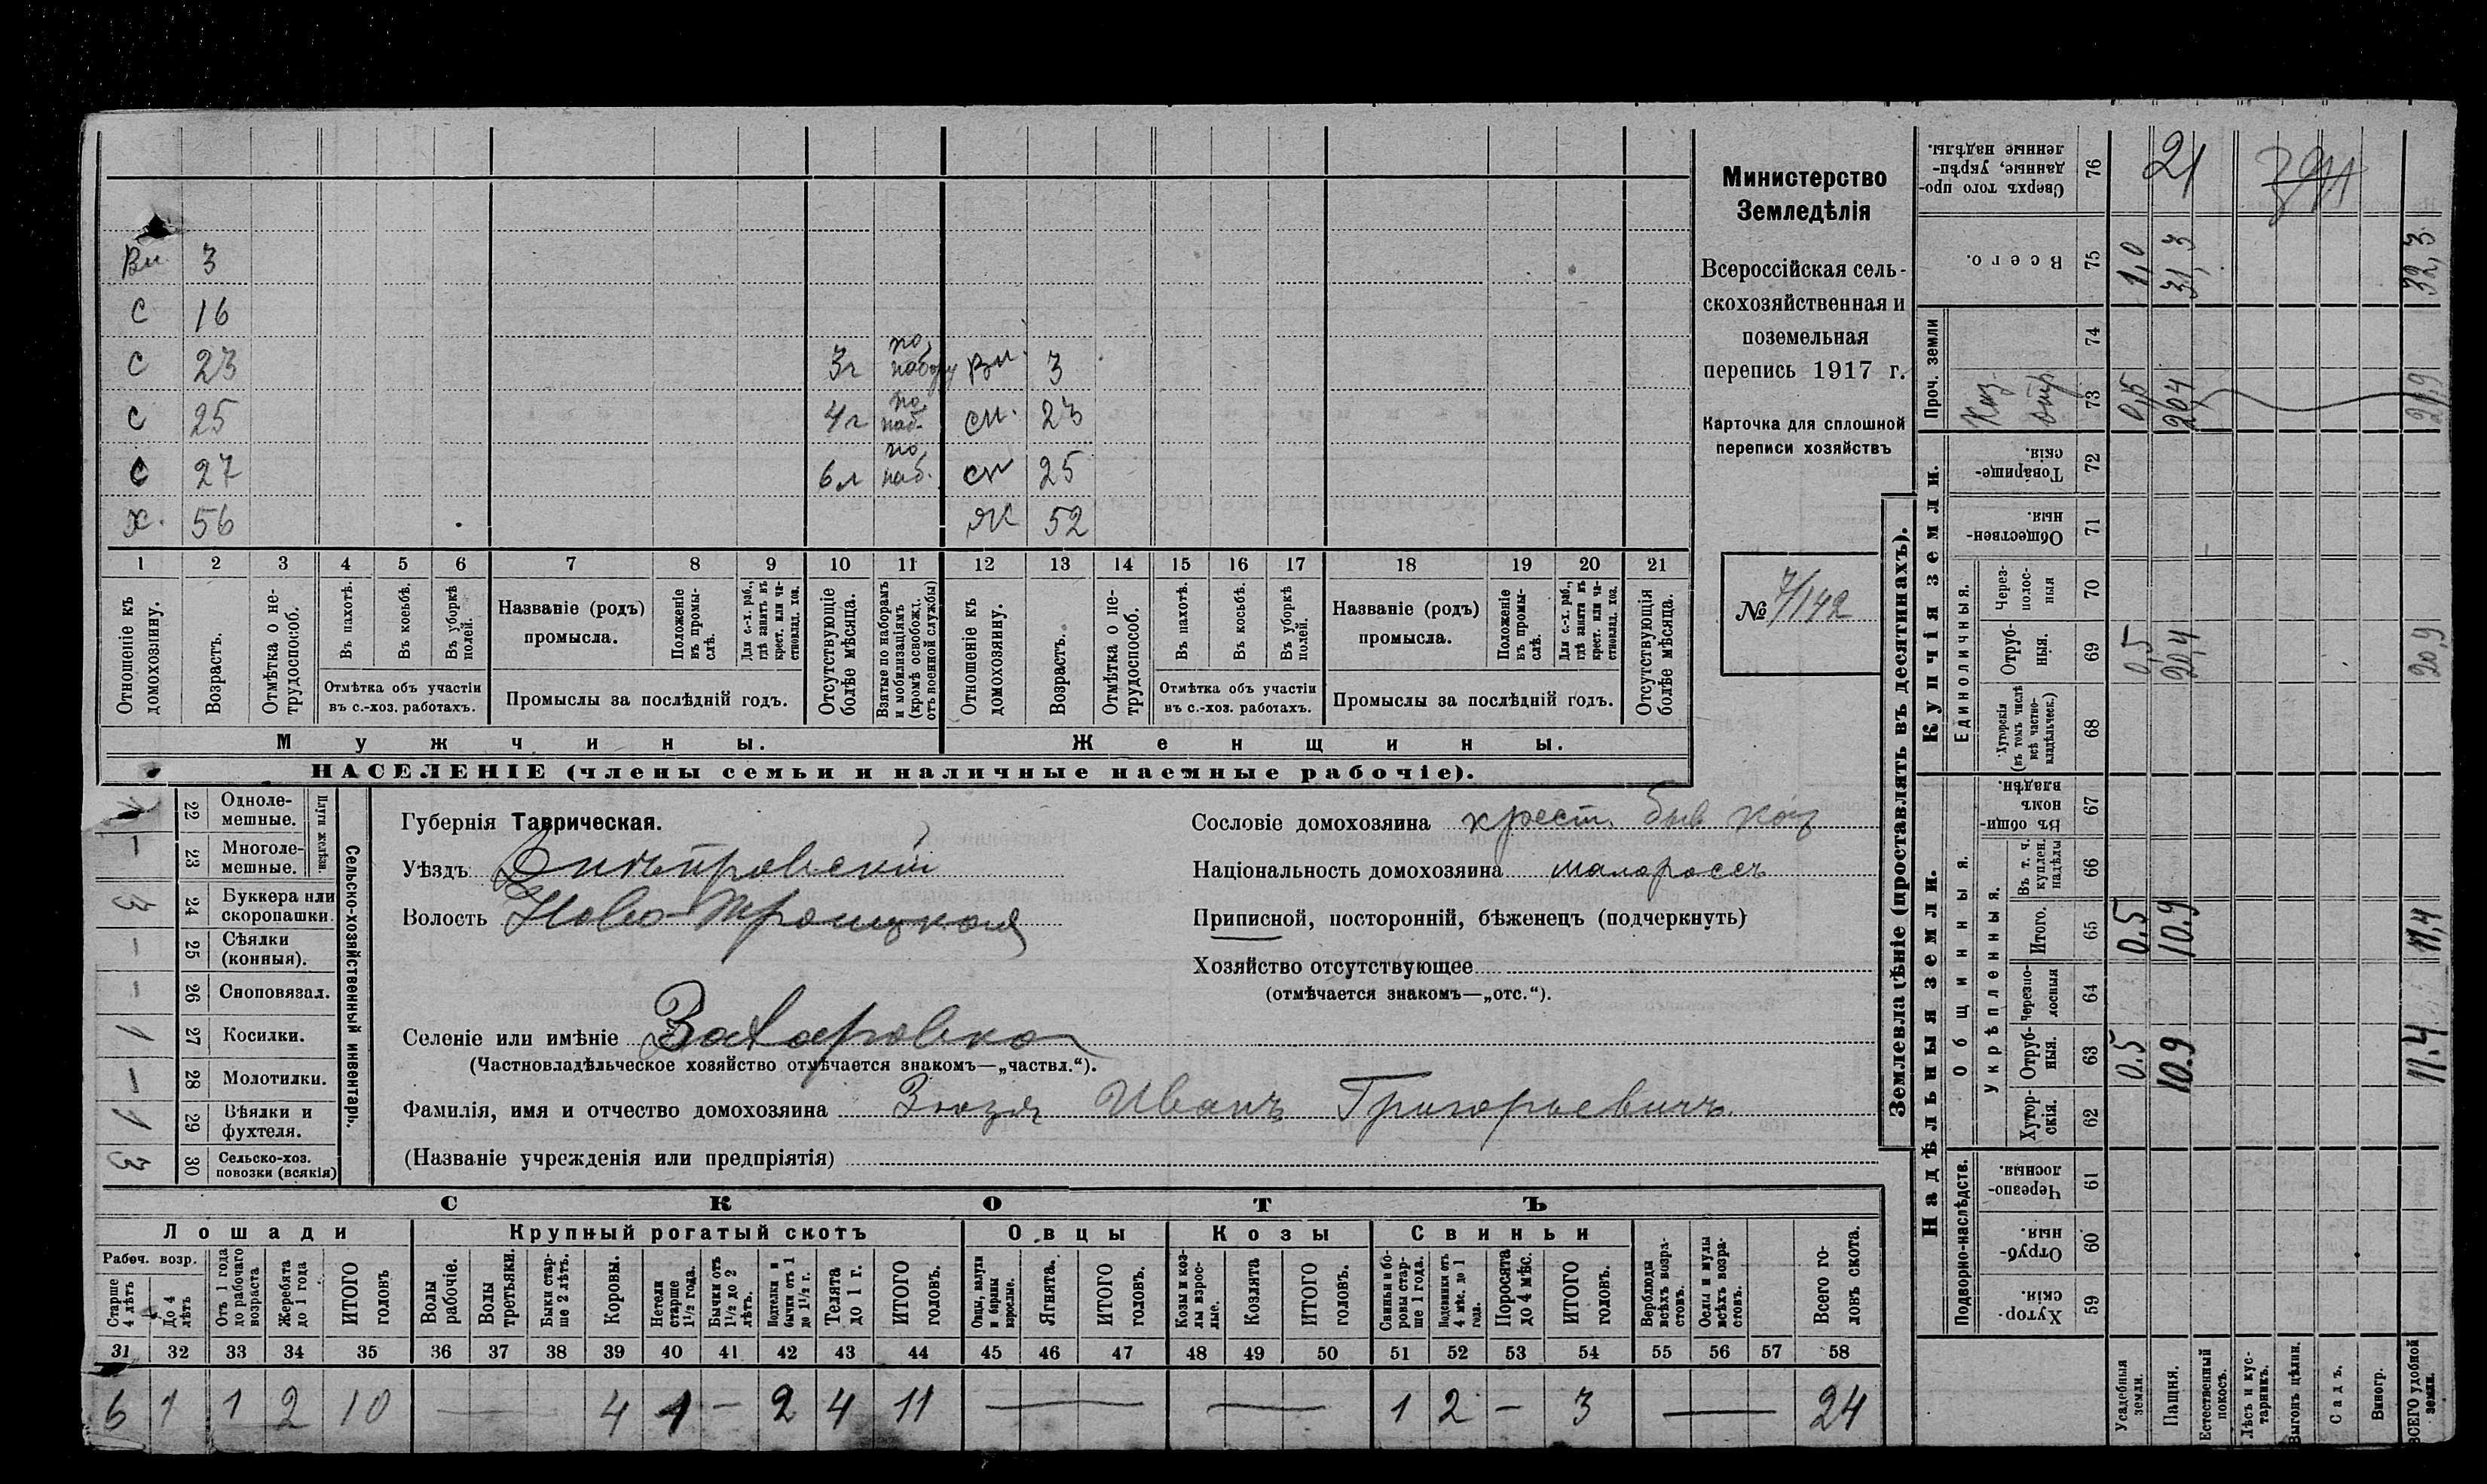 Министерство
Земледѣлія
Всероссійская сель-
скохозяйственная и
поземельная
перепись 1917 г.
Карточка для сплошной
переписи хозяйствъ
№ 7/142
Вн 3
С 16
С 23 3г по набору вн. 3
С 25 4г по наб. сн. 23
С 27 6л по наб. сн 25
Х. 56 Ж 52
1 2 3 4 5 6 7 8 9 10 11 12 13 14 15 16 17 18 19 20 21
Отношеніе къ домохозяину.
Возрастъ.
Отмѣтка о не-трудоспособ.
Въ пахотѣ.
Въ косьбѣ.
Въ уборкѣ полей.
Отмѣтка объ участіи въ с.-хоз. работахъ.
Названіе (родъ) промысла.
Положеніе въ промы-слѣ.
Для с.-х. раб., гдѣ занятъ въ крест. или ча-стновлад. хоз.
Промыслы за послѣдній годъ.
Отсутствующіе болѣе мѣсяца.
Взятые по наборамъ и мобилизаціямъ (кромѣ освобожд. отъ военной службы)
Отношеніе къ домохозяину.
Возрастъ.
Отмѣтка о не-трудоспособ.
Въ пахотѣ.
Въ косьбѣ.
Въ уборкѣ полей.
Отмѣтка объ участіи въ с.-хоз. работахъ.
Названіе (родъ) промысла.
Положеніе въ промы-слѣ.
Для с.-х. раб., гдѣ занята въ крест. или ча-стновлад. хоз.
Промыслы за послѣдній годъ.
Отсутствующія болѣе мѣсяца.
Мужчины.
Женщины.
НАСЕЛЕНІЕ (члены семьи и наличные наемные рабочіе).
Сельско-хозяйственный инвентарь.
Плуги желѣзн.
22 Одноле-мешные.
— 23 Многоле-мешные.
3 24 Буккера или скоропашки.
— 25 Сѣялки (конныя).
— 26 Сноповязал.
1 27 Косилки.
— 28 Молотилки.
1 29 Вѣялки и фухтеля.
3 30 Сельско-хоз. повозки (всякія)
Губернія Таврическая.
Уѣздъ Днѣпровскій
Волость Ново-Троицкая
Селеніе или имѣніе Захаровка
(Частновладѣльческое хозяйство отмѣчается знакомъ—„частвл.“).
Фамилія, имя и отчество домохозяина Зюзя Иванъ Григорьевичъ.
(Названіе учрежденія или предпріятія)
Сословіе домохозяина крест. быв каз
Національность домохозяина малороссъ
Приписной, посторонній, бѣженецъ (подчеркнуть)
Хозяйство отсутствующее
(отмѣчается знакомъ—„отс.“).
СКОТЪ
Лошади Крупный рогатый скотъ Овцы Козы Свиньи
Рабоч. возр.
Старше 4 лѣтъ
До 4 лѣтъ
Отъ 1 года до рабочаго возраста
Жеребята до 1 года
ИТОГО головъ
Волы рабочіе.
Волы третьяки.
Быки стар-ше 2 лѣтъ.
Коровы.
Нетели старше 1½ года.
Бычки отъ 1½ до 2 лѣтъ.
Подтелки и бычки отъ 1 до 1½ г.
Телята до 1 г.
ИТОГО головъ.
Овцы, валухи и бараны взрослые.
Ягнята.
ИТОГО головъ.
Козы и коз-лы взрос-лые.
Козлята
ИТОГО головъ.
Свиньи и бо-ровы стар-ше 1 года.
Подсвинки отъ 4 мѣс. до 1 года.
Поросята до 4 мѣс.
ИТОГО головъ.
Верблюды всѣхъ возра-стовъ.
Ослы и мулы всѣхъ возра-стовъ.
Всего го-ловъ скота.
31 32 33 34 35 36 37 38 39 40 41 42 43 44 45 46 47 48 49 50 51 52 53 54 55 56 57 58
6 1 1 2 10 — 4 1 — 2 4 11 — — 1 2 — 3 — 24
Землевладѣніе (проставлять въ десятинахъ).
Купчія земли.
Надѣльныя земли.
Проч. земли
Единоличныя.
Общинныя.
Укрѣпленныя.
Подворно-наслѣдств.
Сверхъ того про-данные, укрѣп-ленные надѣлы. 76 21
Всего. 75 1,0 31,3 32,3
74
Каз. 73 0,5 20,4 20,9
Товарище-скія. 72
Обществен-ныя. 71
Через-полос-ныя 70
Отруб-ныя. 69 0,5 20,4 20,9
Хуторскія (въ томъ числѣ всѣ частно-владѣльческ.) 68
Въ общи-номъ владѣн. 67
Въ т. ч. куплен. надѣлы 66
Итого. 65 0,5 10,9 11,4
Черезпо-лосныя 64
Отруб-ныя. 63 0.5 10.9 11.4
Хутор-скія. 62
Черезпо-лосныя. 61
Отруб-ныя. 60
Хутор-скія. 59
Усадебныя земли.
Пашня.
Естественный покосъ.
Лѣсъ и кус-тарникъ.
Выгонъ цѣлин.
Садъ.
Виногр.
ВСЕГО удобной земли.